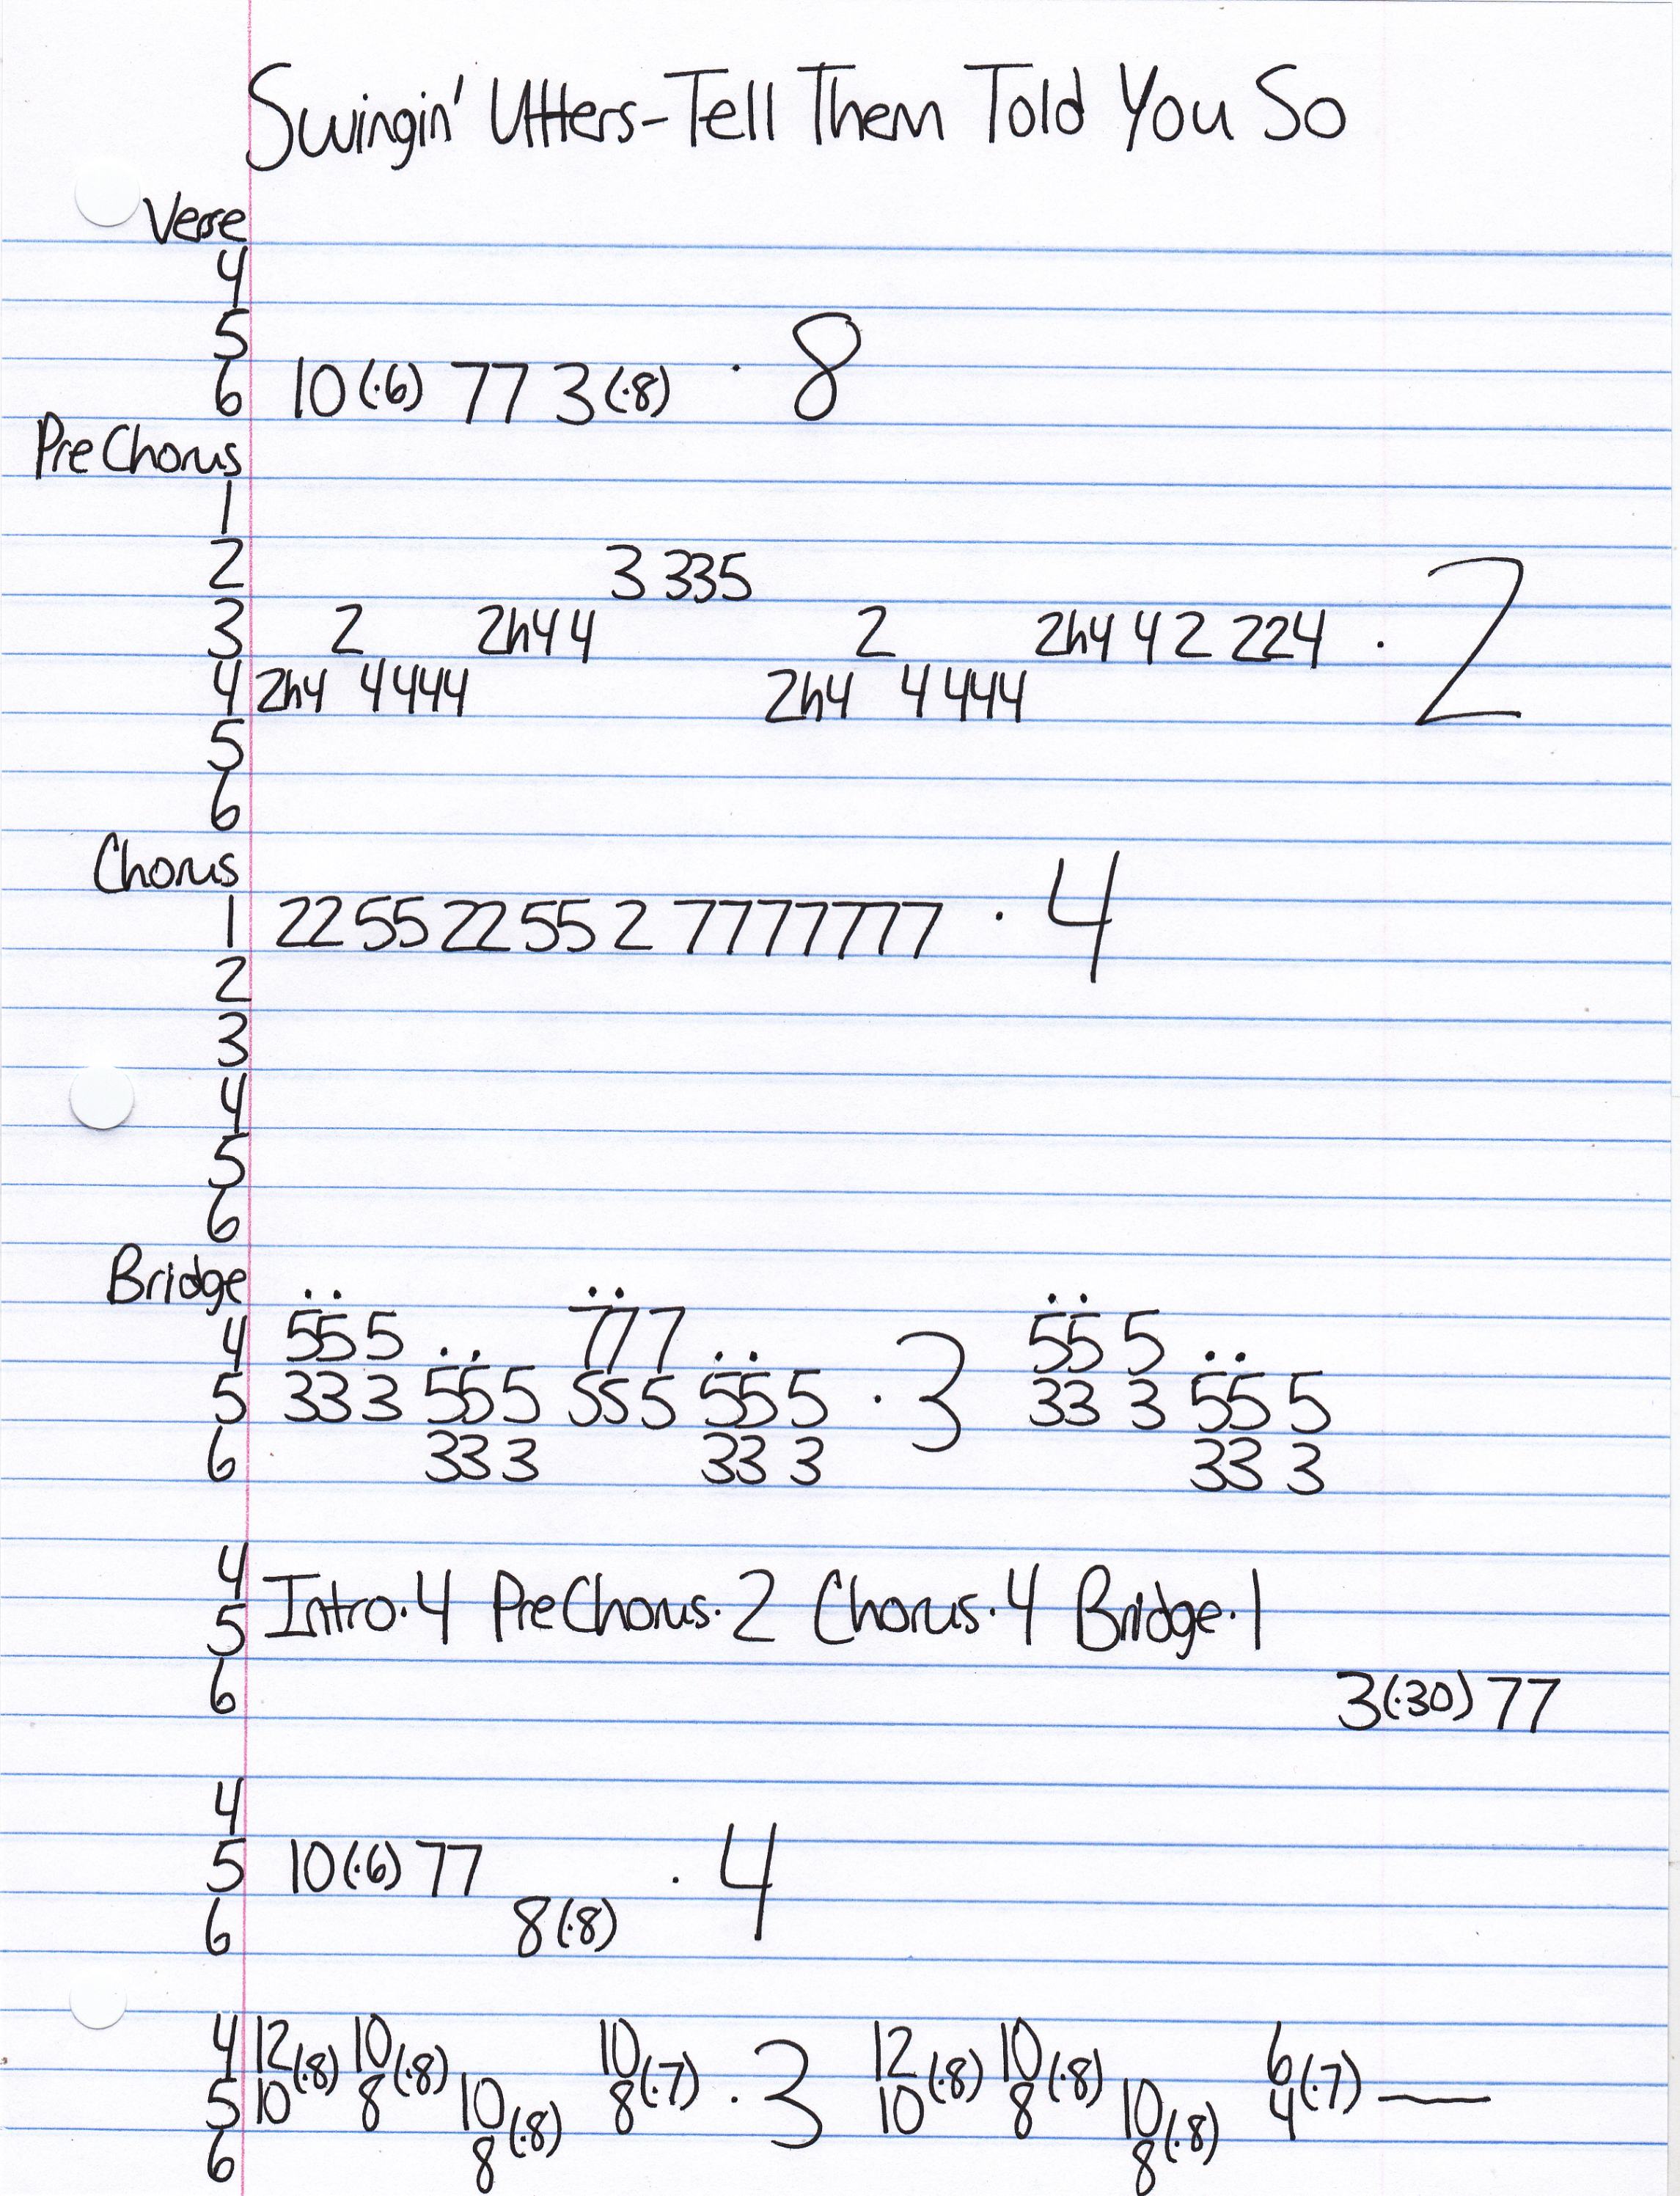 Swingin' Utters-Tell Them Told You So
Verse
4
5
6 10(·6) 77 3(·8) · 8
PreChorus
1
2 3 335
3 2 2h4 4 2 2h4 4 2 224 · 2
4 2h4 4 444 2h4 4 444
5
6
Chorus
1 22 55 22 55 2 7777777 · 4
2
3
4
5
6
Bridge
4 55 5 77 7 55 5
5 33 3 55 5 55 5 55 5 · 3 33 3 55 5
6 33 3 33 3 33 3
4
5 Intro·4 PreChorus·2 Chorus·4 Bridge·1
6 3(·30) 77
4
5 10(·6) 77 · 4
6 8(·8)
4 12(·8) 10(·8) 10(·7) · 3 12(·8) 10(·8) 6(·7) —
5 10 8 10(·8) 8 10 8 10(·8) 4
6 8 8